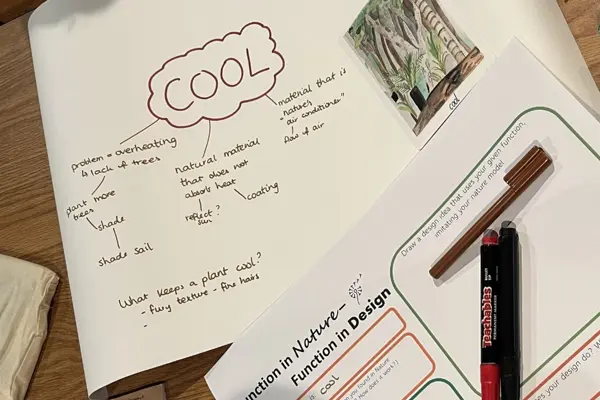 COOL
problem = overheating
& lack of trees
plant more
trees
shade
shade sail
natural material
that does not
absorb heat
reflect
sun?
coating
material that is
"nature's
air conditioner"
flow of air
What keeps a plant cool?
- furry texture - fine hairs
-
cool
Draw a design idea that uses your given function,
imitating your nature model
Teachables
PERMANENT MARKER
unction in Nature-
Function in Design
is: COOL
you found in Nature
How does it work?)
es your design do? W